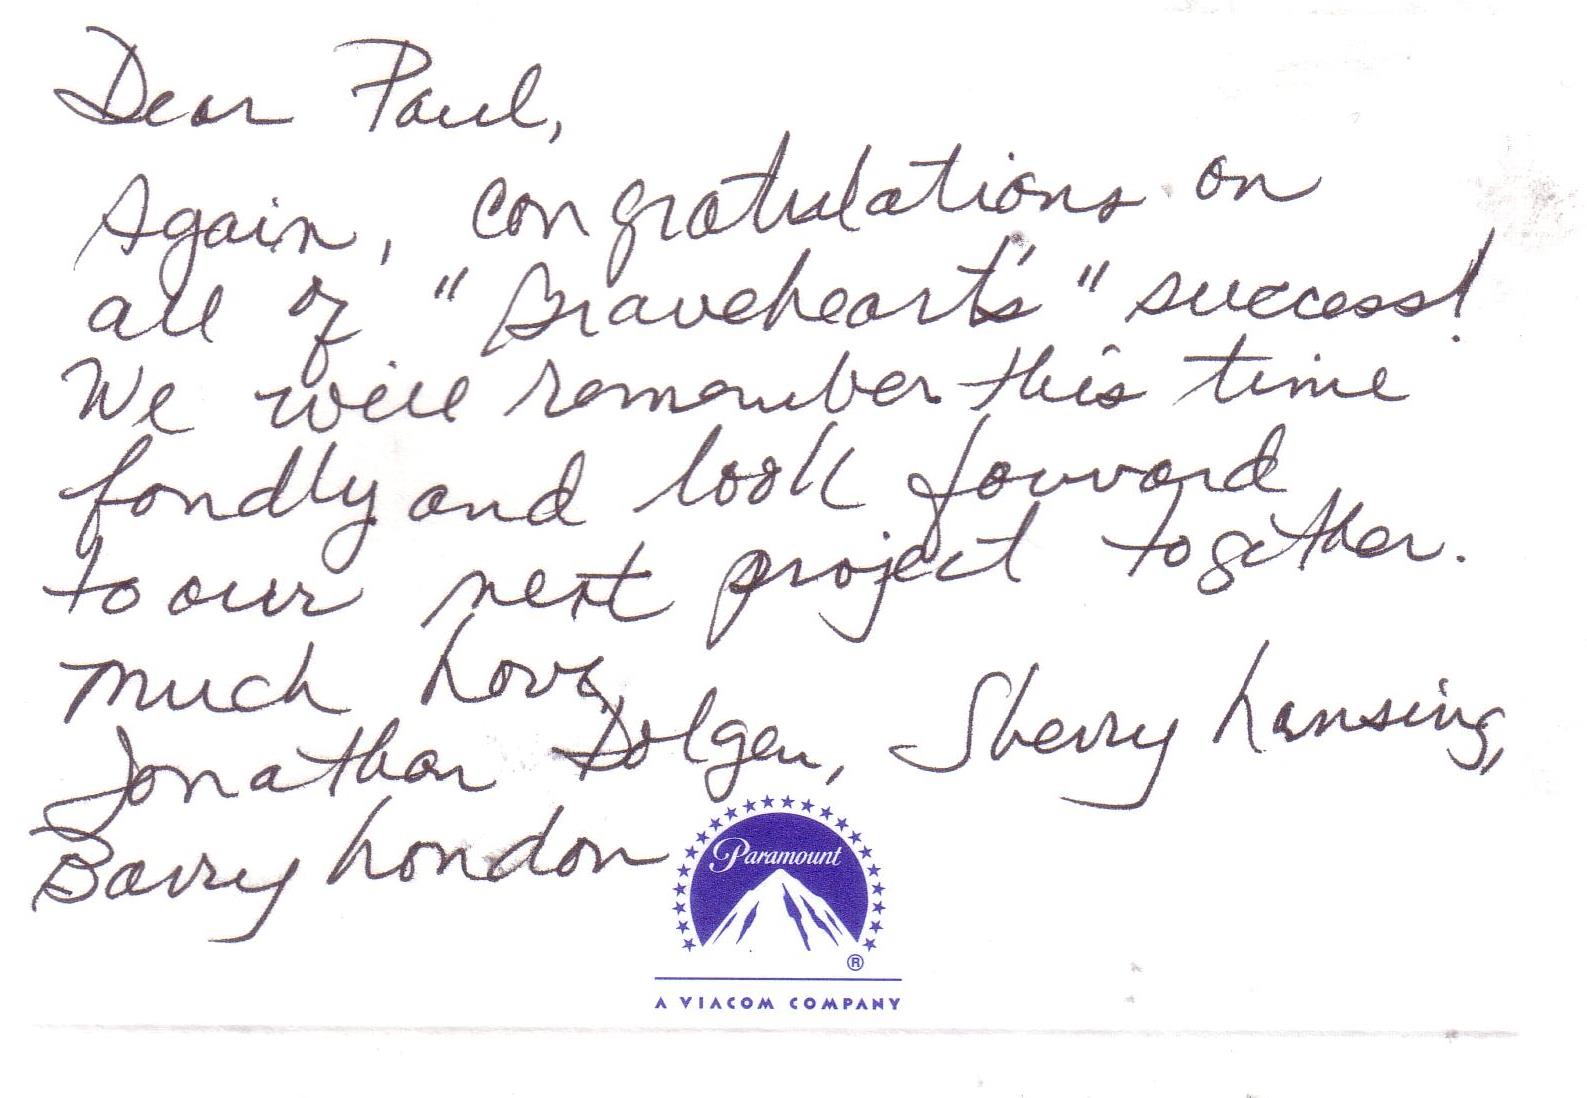 Dear Paul,
Again, congratulations on
all of "Braveheart's" success!
We will remember this time
fondly and look forward
to our next project together.
Much Love,
Jonathan Dolgen, Sherry Lansing,
Barry London
Paramount
®
A VIACOM COMPANY